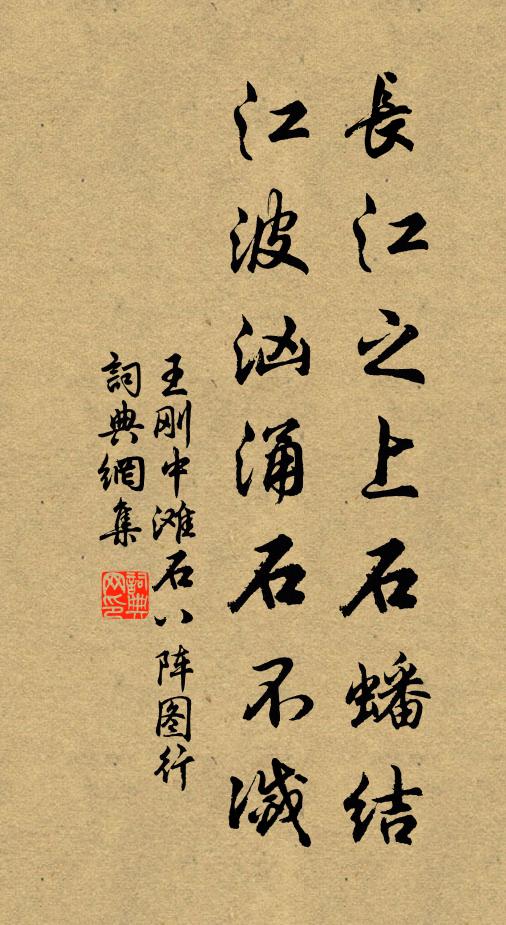 長江之上石蟠結
江波汹涌石不滅
王刚中滩石八阵图行
詞典網集
詞典网印